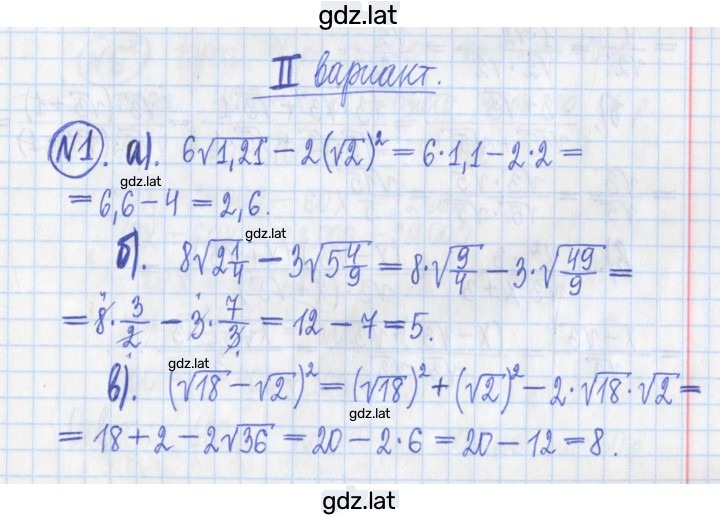 gdz.lat
II вариант.
№1. а). 6√1,21 − 2(√2)² = 6·1,1 − 2·2 =
gdz.lat
= 6,6 − 4 = 2,6.
gdz.lat
б). 8√2 1/4 − 3√5 4/9 = 8·√9/4 − 3·√49/9 =
= 8·3/2 − 3·7/3 = 12 − 7 = 5.
gdz.lat
в). (√18 − √2)² = (√18)² + (√2)² − 2·√18·√2 =
gdz.lat
= 18 + 2 − 2√36 = 20 − 2·6 = 20 − 12 = 8.
gdz.lat